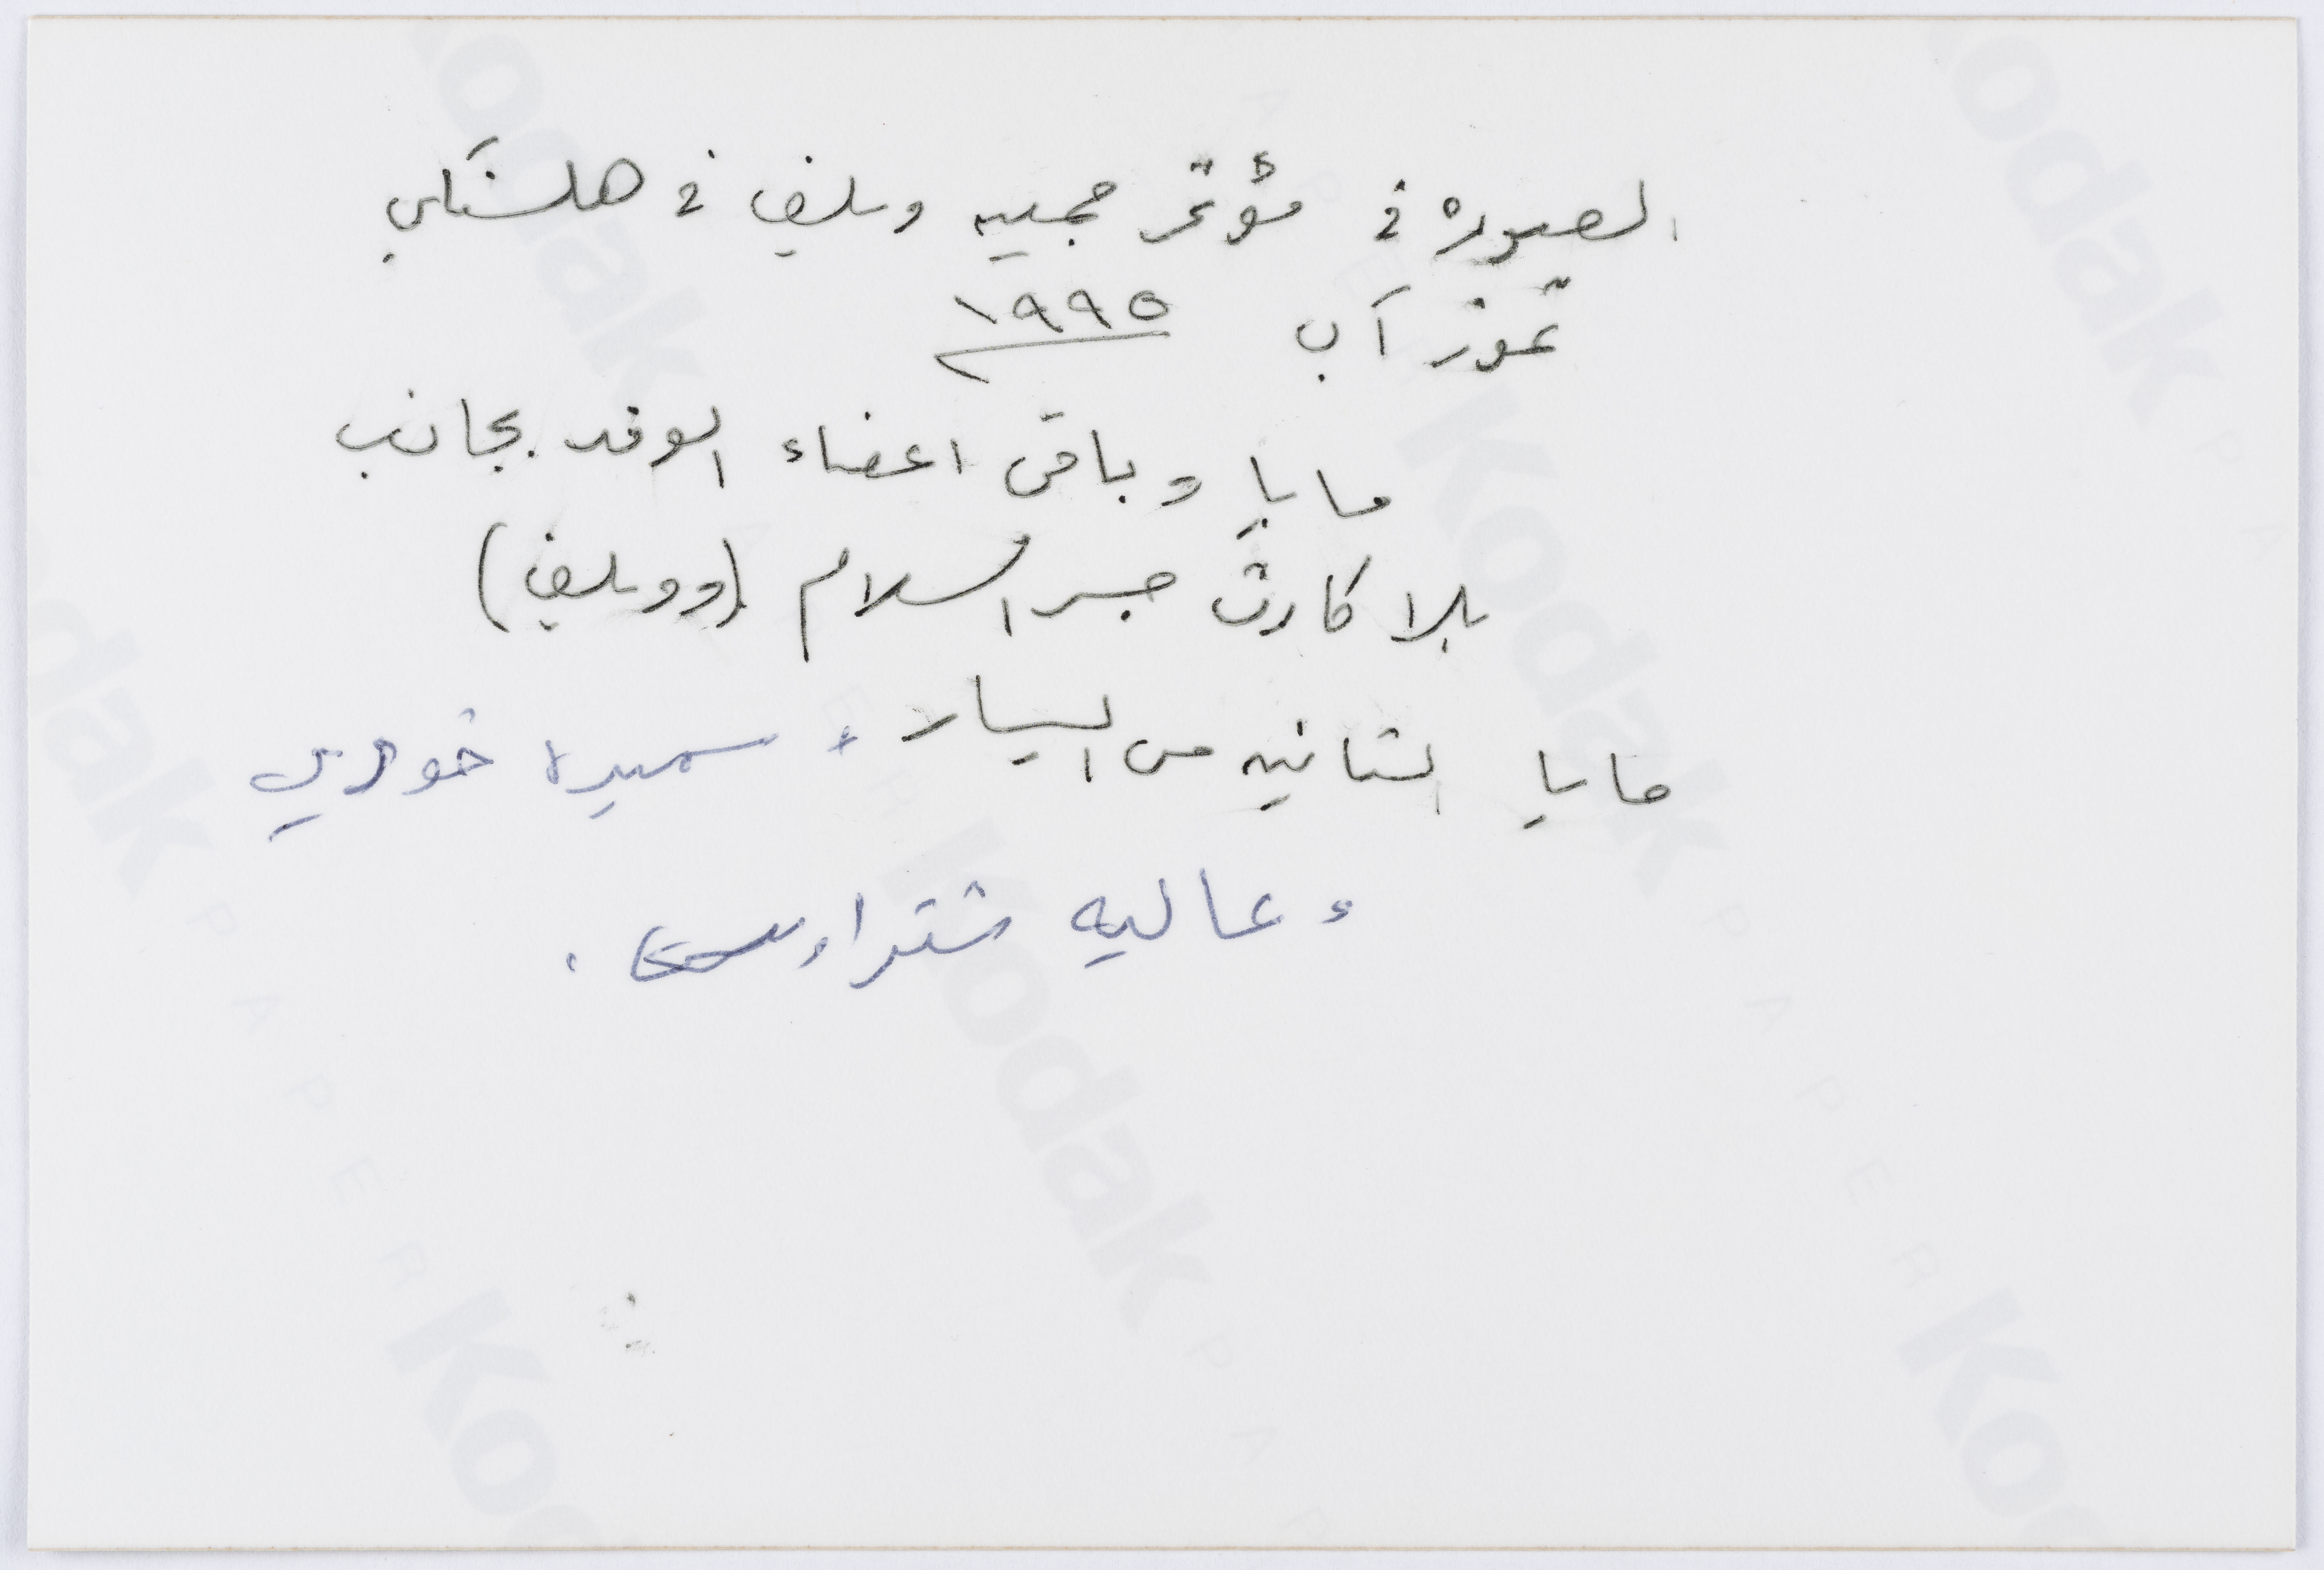 الصوره في مؤتمر جمعيه ويلف في هلسنكي
تموز آب ١٩٩٥
مايا وباقي اعضاء الوفد بجانب
بلا كارت جسر السلام (وويلف)
مايا الثانيه من اليسار، سميره خوري
وعاليه شتراوس.
Kodak PAPER